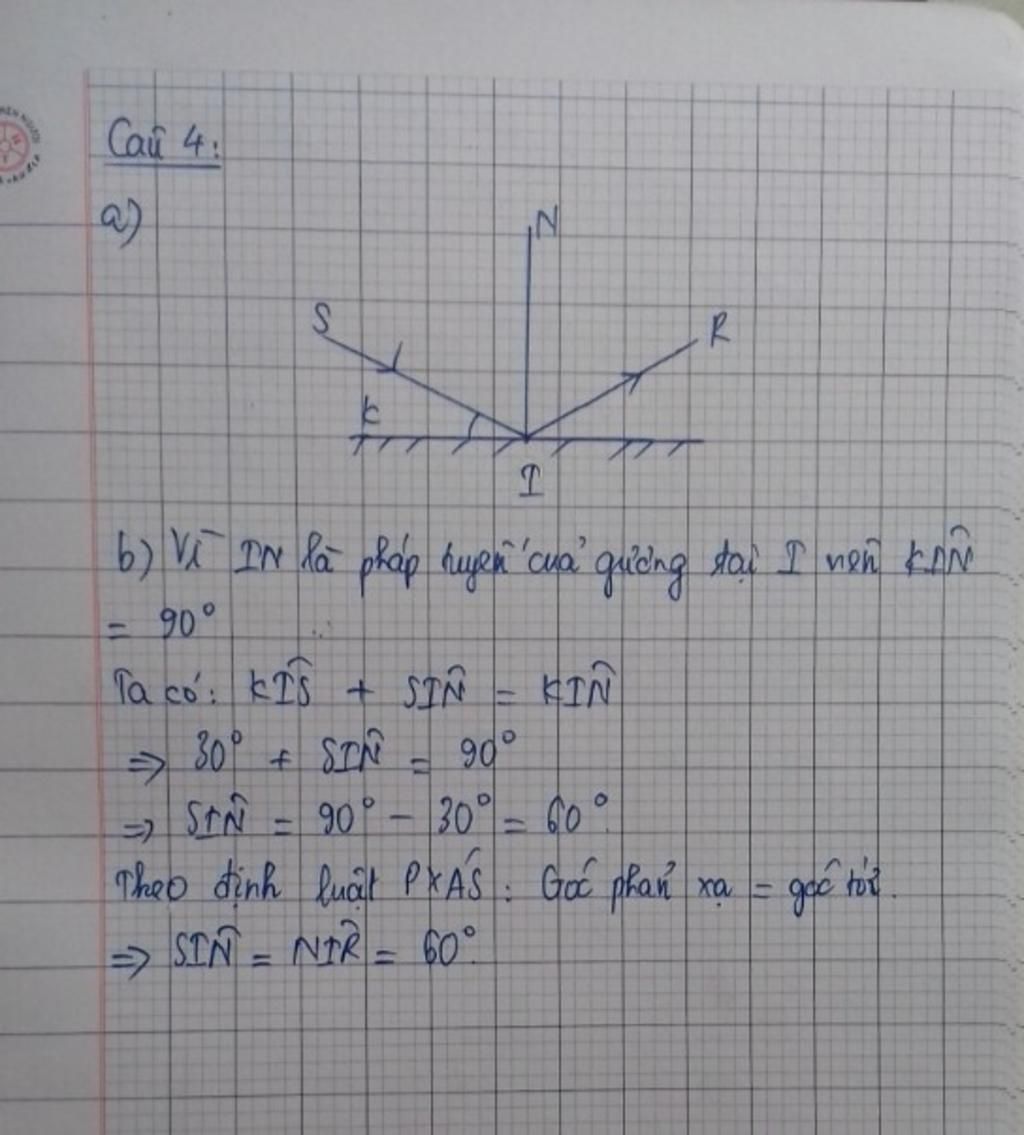 Câu 4:
a)
N
S
R
K
I
b) Vì IN là pháp tuyến của gương tại I nên KIN̂
= 90°
Ta có: KIŜ + SIN̂ = KIN̂
=> 30° + SIN̂ = 90°
=> SIN̂ = 90° - 30° = 60°
Theo định luật PXÁS: Góc phản xạ = góc tới.
=> SIN̂ = NIR̂ = 60°.